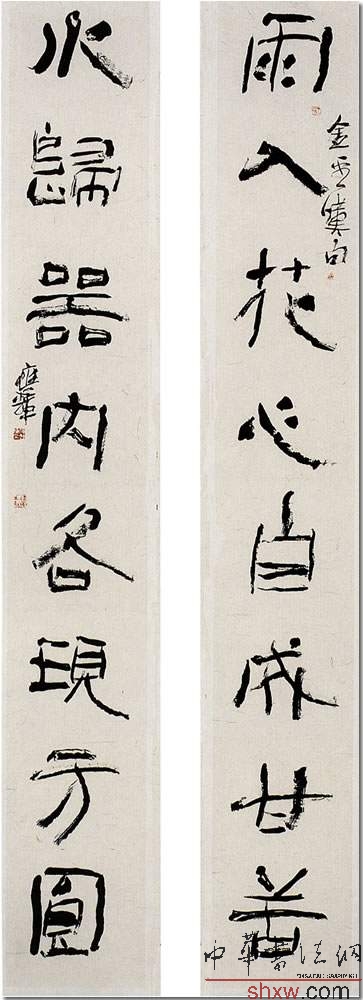 雨入花心自成甘苦
水歸器内各現方圓
中華書法網
shxw.com